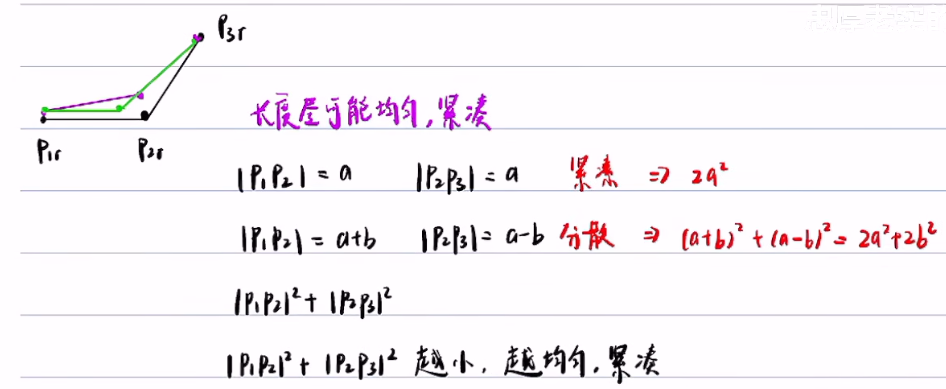 P3r
P1r P2r
长度尽可能均匀,紧凑
|P1P2| = a |P2P3| = a 紧凑 => 2a²
|P1P2| = a+b |P2P3| = a-b 分散 => (a+b)²+(a-b)²=2a²+2b²
|P1P2|²+|P2P3|²
|P1P2|²+|P2P3|² 越小,越均匀,紧凑